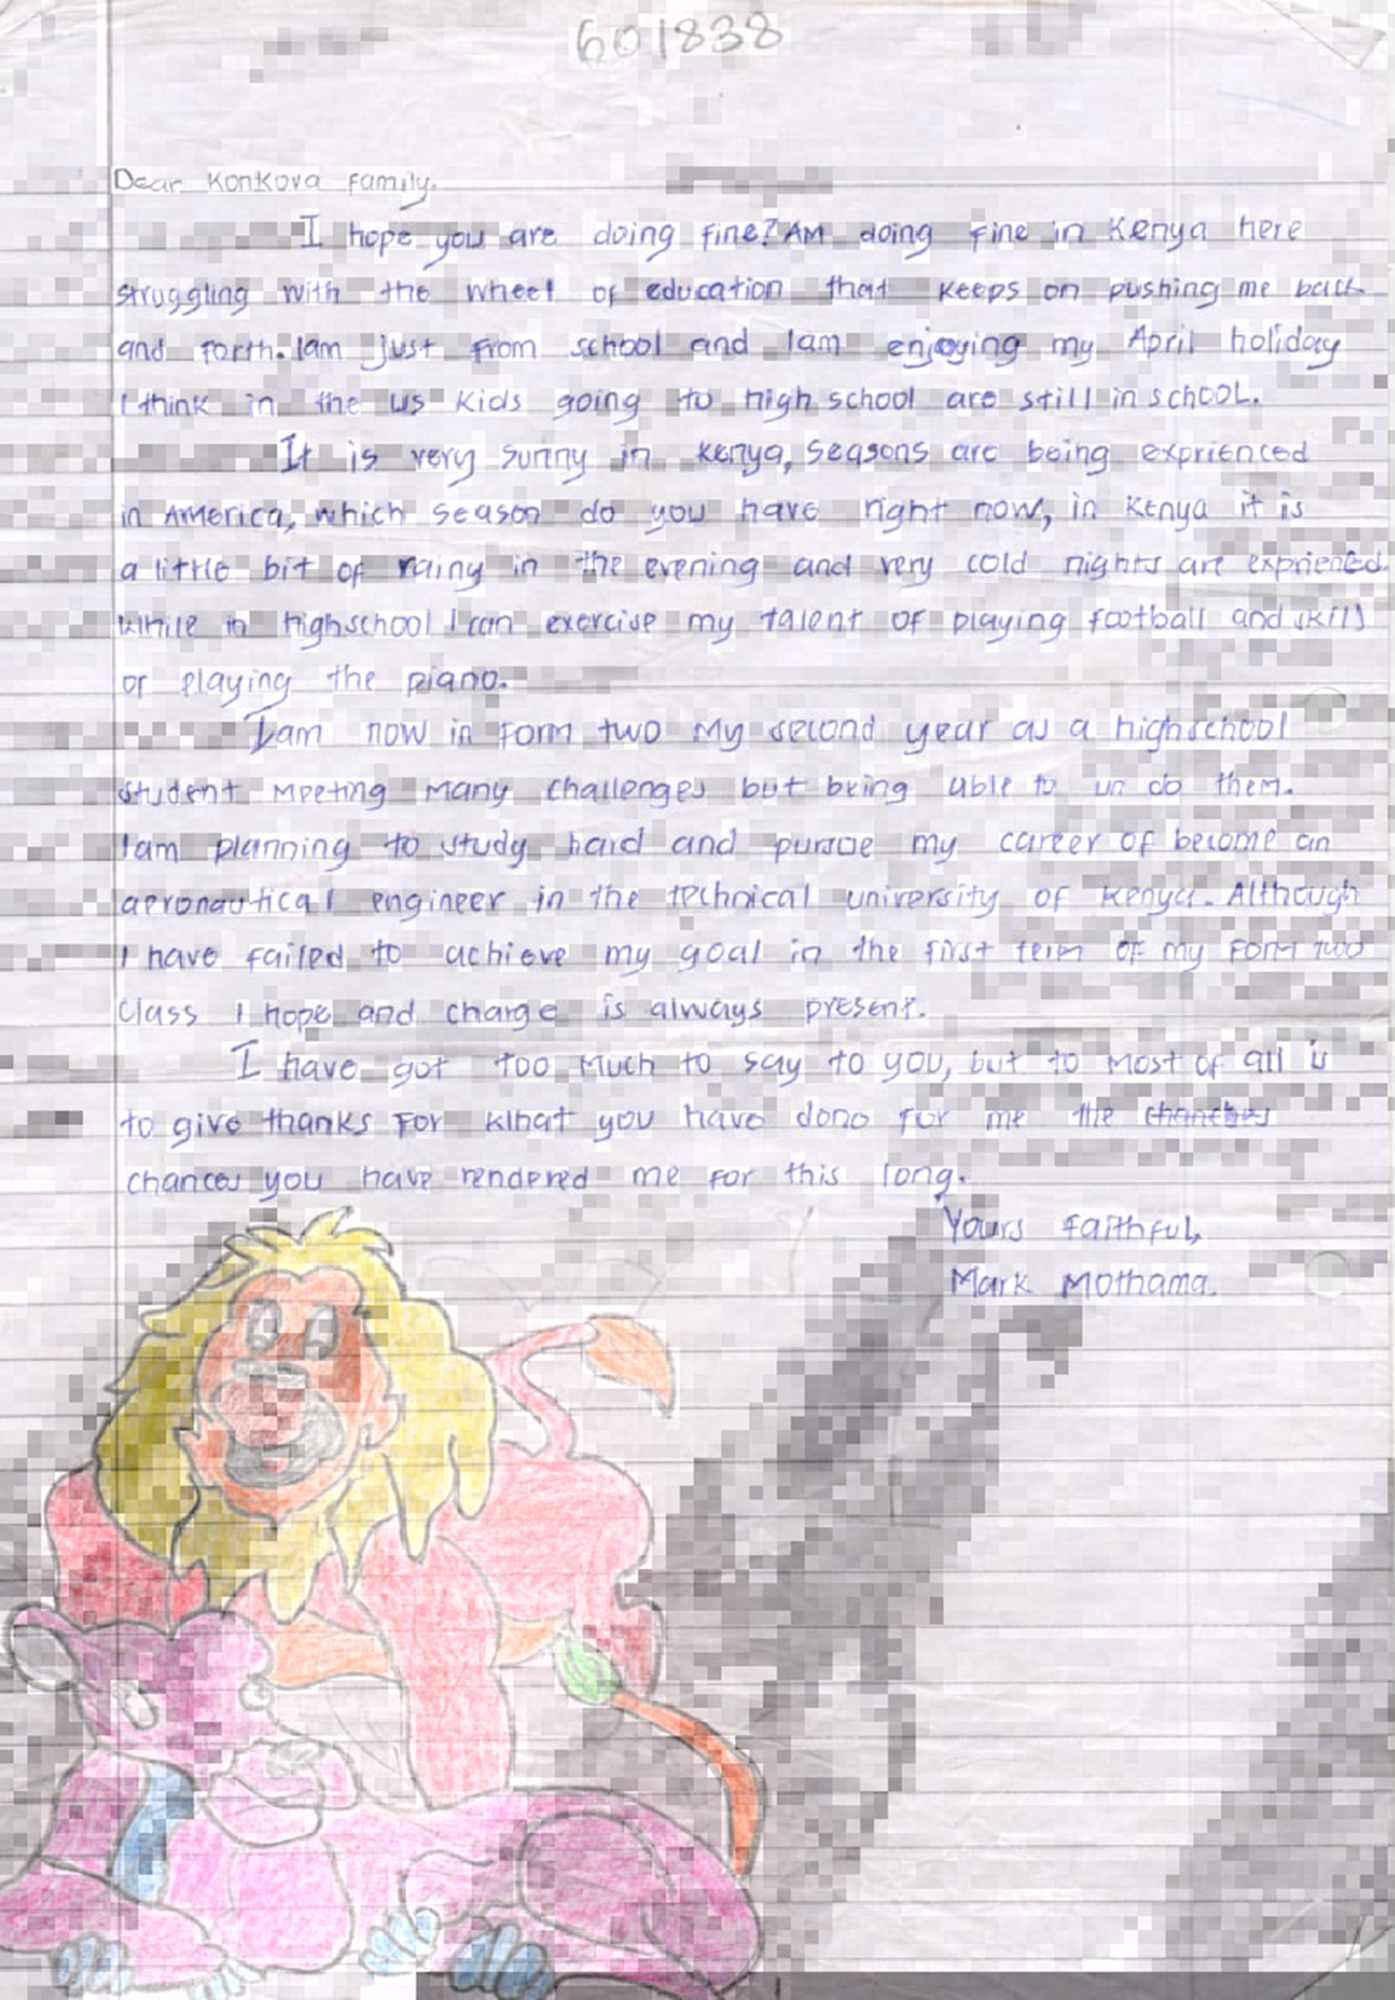 601838
Dear Konkova Family.
I hope you are doing fine? Am doing fine in Kenya here
struggling with the wheel of education that keeps on pushing me back
and forth. Iam just from school and Iam enjoying my April holiday
I think in the us kids going to high school are still in school.
It is very sunny in Kenya, seasons are being exprienced
in America, which season do you have right now, in Kenya it is
a little bit of rainy in the evening and very cold nights are exprienced.
While in highschool I can exercise my talent of playing football and skills
of playing the piano.
Iam now in form two my second year as a highschool
student meeting many challenges but being able to un do them.
Iam planning to study hard and pursue my career of become an
aeronautical engineer in the technical university of Kenya. Although
I have failed to achieve my goal in the first term of my form two
class I hope and charge is always present.
I have got too much to say to you, but to most of all is
to give thanks for what you have done for me the
chances you have rendered me for this long.
Yours faithful,
Mark Mothama.